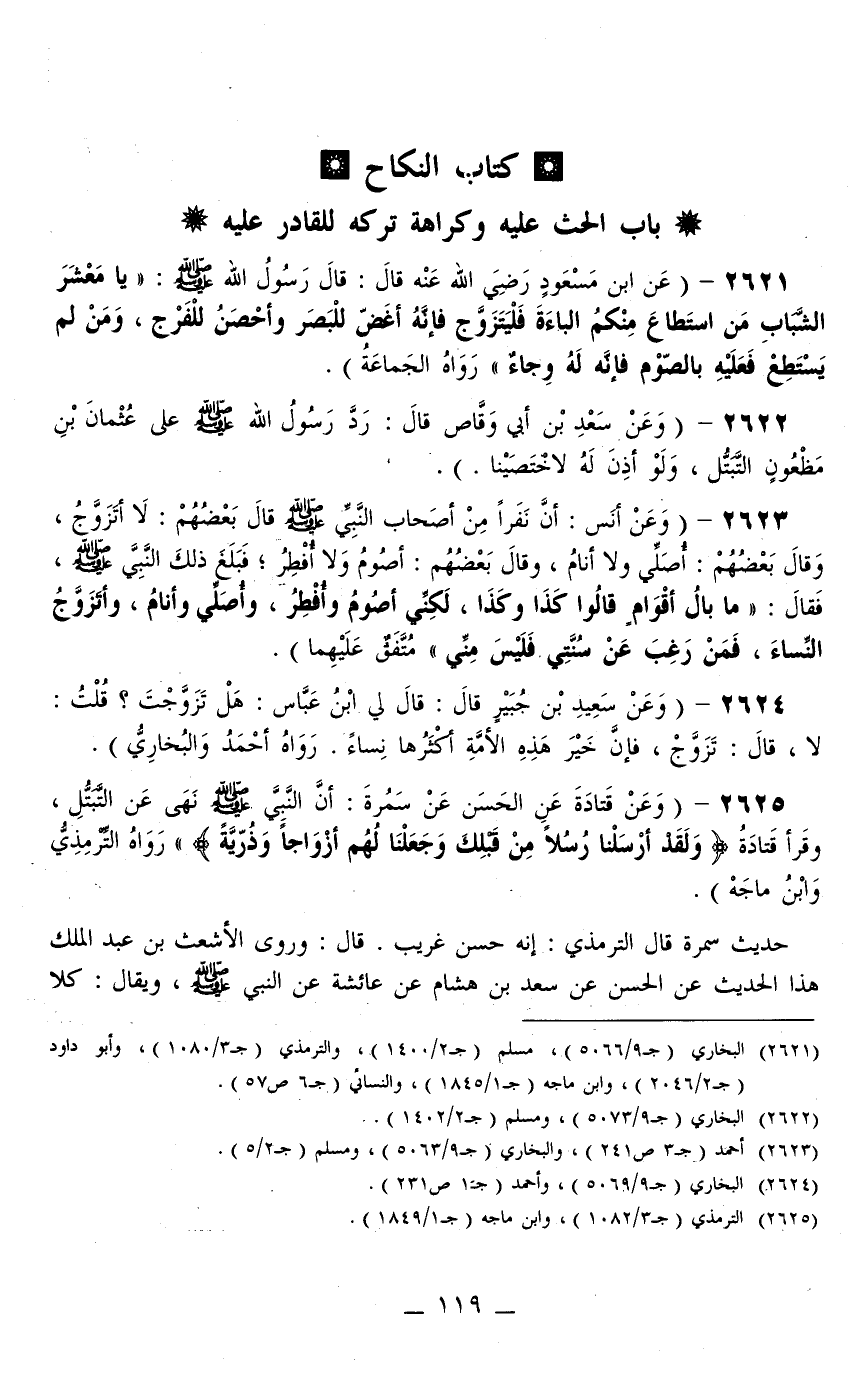 كتاب النكاح
باب الحث عليه وكراهة تركه للقادر عليه
٢٦٢١ - ( عَن ابن مَسْعَودٍ رَضِيَ الله عَنْه قالَ : قالَ رَسُولُ الله ﷺ : « يا مَعْشَرَ
الشَّبَابِ مَن استَطاعَ مِنْكمُ الباءَةَ فَلْيَتَزَوَّج فإنَّهُ أغَضّ للْبَصَر وأحْصَنُ للْفَرْج ، وَمَنْ لم
يَسْتَطِعْ فَعَلَيْهِ بالصّوْم فإنَّه لَهُ وِجاءٌ » رَوَاهُ الجَماعَةُ ) .
٢٦٢٢ - ( وَعَنْ سَعْدِ بْن أبي وَقَّاص قالَ : رَدَّ رَسُولُ الله ﷺ على عُثْمانَ بْنِ
مَظْعُونٍ التَّبَتُّل ، وَلَوْ أذِنَ لَهُ لاخْتَصَيْنا . ) .
٢٦٢٣ - ( وَعَنْ أنَس : أنَّ نَفَراً مِنْ أصَحاب النَّبِيِّ ﷺ قالَ بَعْضُهُمْ : لَا أتَزَوَّجُ ،
وَقالَ بَعْضُهُمْ : أُصَلِّي ولا أنامُ ، وقالَ بَعْضُهُم : أصُومُ وَلا أُفْطِرُ ؛ فَبَلَغَ ذلكَ النَّبِيَّ ﷺ ،
فَقالَ : « ما بالُ أقْوَامٍ قالُوا كَذَا وكَذَا ، لَكِنِّي أصُومُ وأُفْطِرُ ، وأُصَلِّي وأنامُ ، وأتَزَوَّجُ
النِّساءَ ، فَمَنْ رَغِبَ عَنْ سُنَّتِي فَلَيْسَ مِنِّي » مُتَّفَقٌ عَلَيْهِما ) .
٢٦٢٤ - ( وَعَنْ سَعِيدِ بْن جُبَيْرٍ قالَ : قالَ لي ابْنُ عَبَّاس : هَلْ تَزَوَّجْتَ ؟ قُلْتُ :
لا ، قالَ : تَزَوَّجْ ، فإنَّ خَيْرَ هَذِهِ الأمَّةِ أكْثَرُها نِساءً . رَوَاهُ أحْمَدُ وَالبُخاريُّ ) .
٢٦٢٥ - ( وَعَنْ قَتادَةَ عَنِ الحَسَن عَنْ سَمُرةَ : أنَّ النَّبِيَّ ﷺ نَهَى عَن التَّبَتُّلِ ،
وقَرأ قَتادَةُ ﴿ وَلَقَدْ أرْسَلْنا رُسُلاً مِنْ قَبْلِكَ وَجَعَلْنَا لَهُم أزْوَاجاً وَذُرِّيَّةً ﴾ » رَوَاهُ التِّرْمِذِيُّ
وَابْنُ ماجَهْ ) .
حديث سمرة قال الترمذي : إنه حسن غريب . قال : وروى الأشعث بن عبد الملك
هذا الحديث عن الحسن عن سعد بن هشام عن عائشة عن النبي ﷺ ، ويقال : كلا
(٢٦٢١) البخاري ( جـ٥٠٦٦/٩ ) ، مسلم ( جـ١٤٠٠/٢ ) ، والترمذي ( جـ١٠٨٠/٣ ) ، وأبو داود
( جـ٢٠٤٦/٢ ) ، وابن ماجه ( جـ١٨٤٥/١ ) ، والنسائي ( جـ٦ ص٥٧ ) .
(٢٦٢٢) البخاري ( جـ٥٠٧٣/٩ ) ، ومسلم ( جـ١٤٠٢/٢ ) . .
(٢٦٢٣) أحمد ( جـ٣ ص٢٤١ ) ، والبخاري ( جـ٥٠٦٣/٩ ) ، ومسلم ( جـ٥/٢ ) .
(٢٦٢٤) البخاري ( جـ٥٠٦٩/٩ ) ، وأحمد ( جـ١ ص٢٣١ ) .
(٢٦٢٥) الترمذي ( جـ١٠٨٢/٣ ) ، وابن ماجه ( جـ١٨٤٩/١ ) .
— ١١٩ —